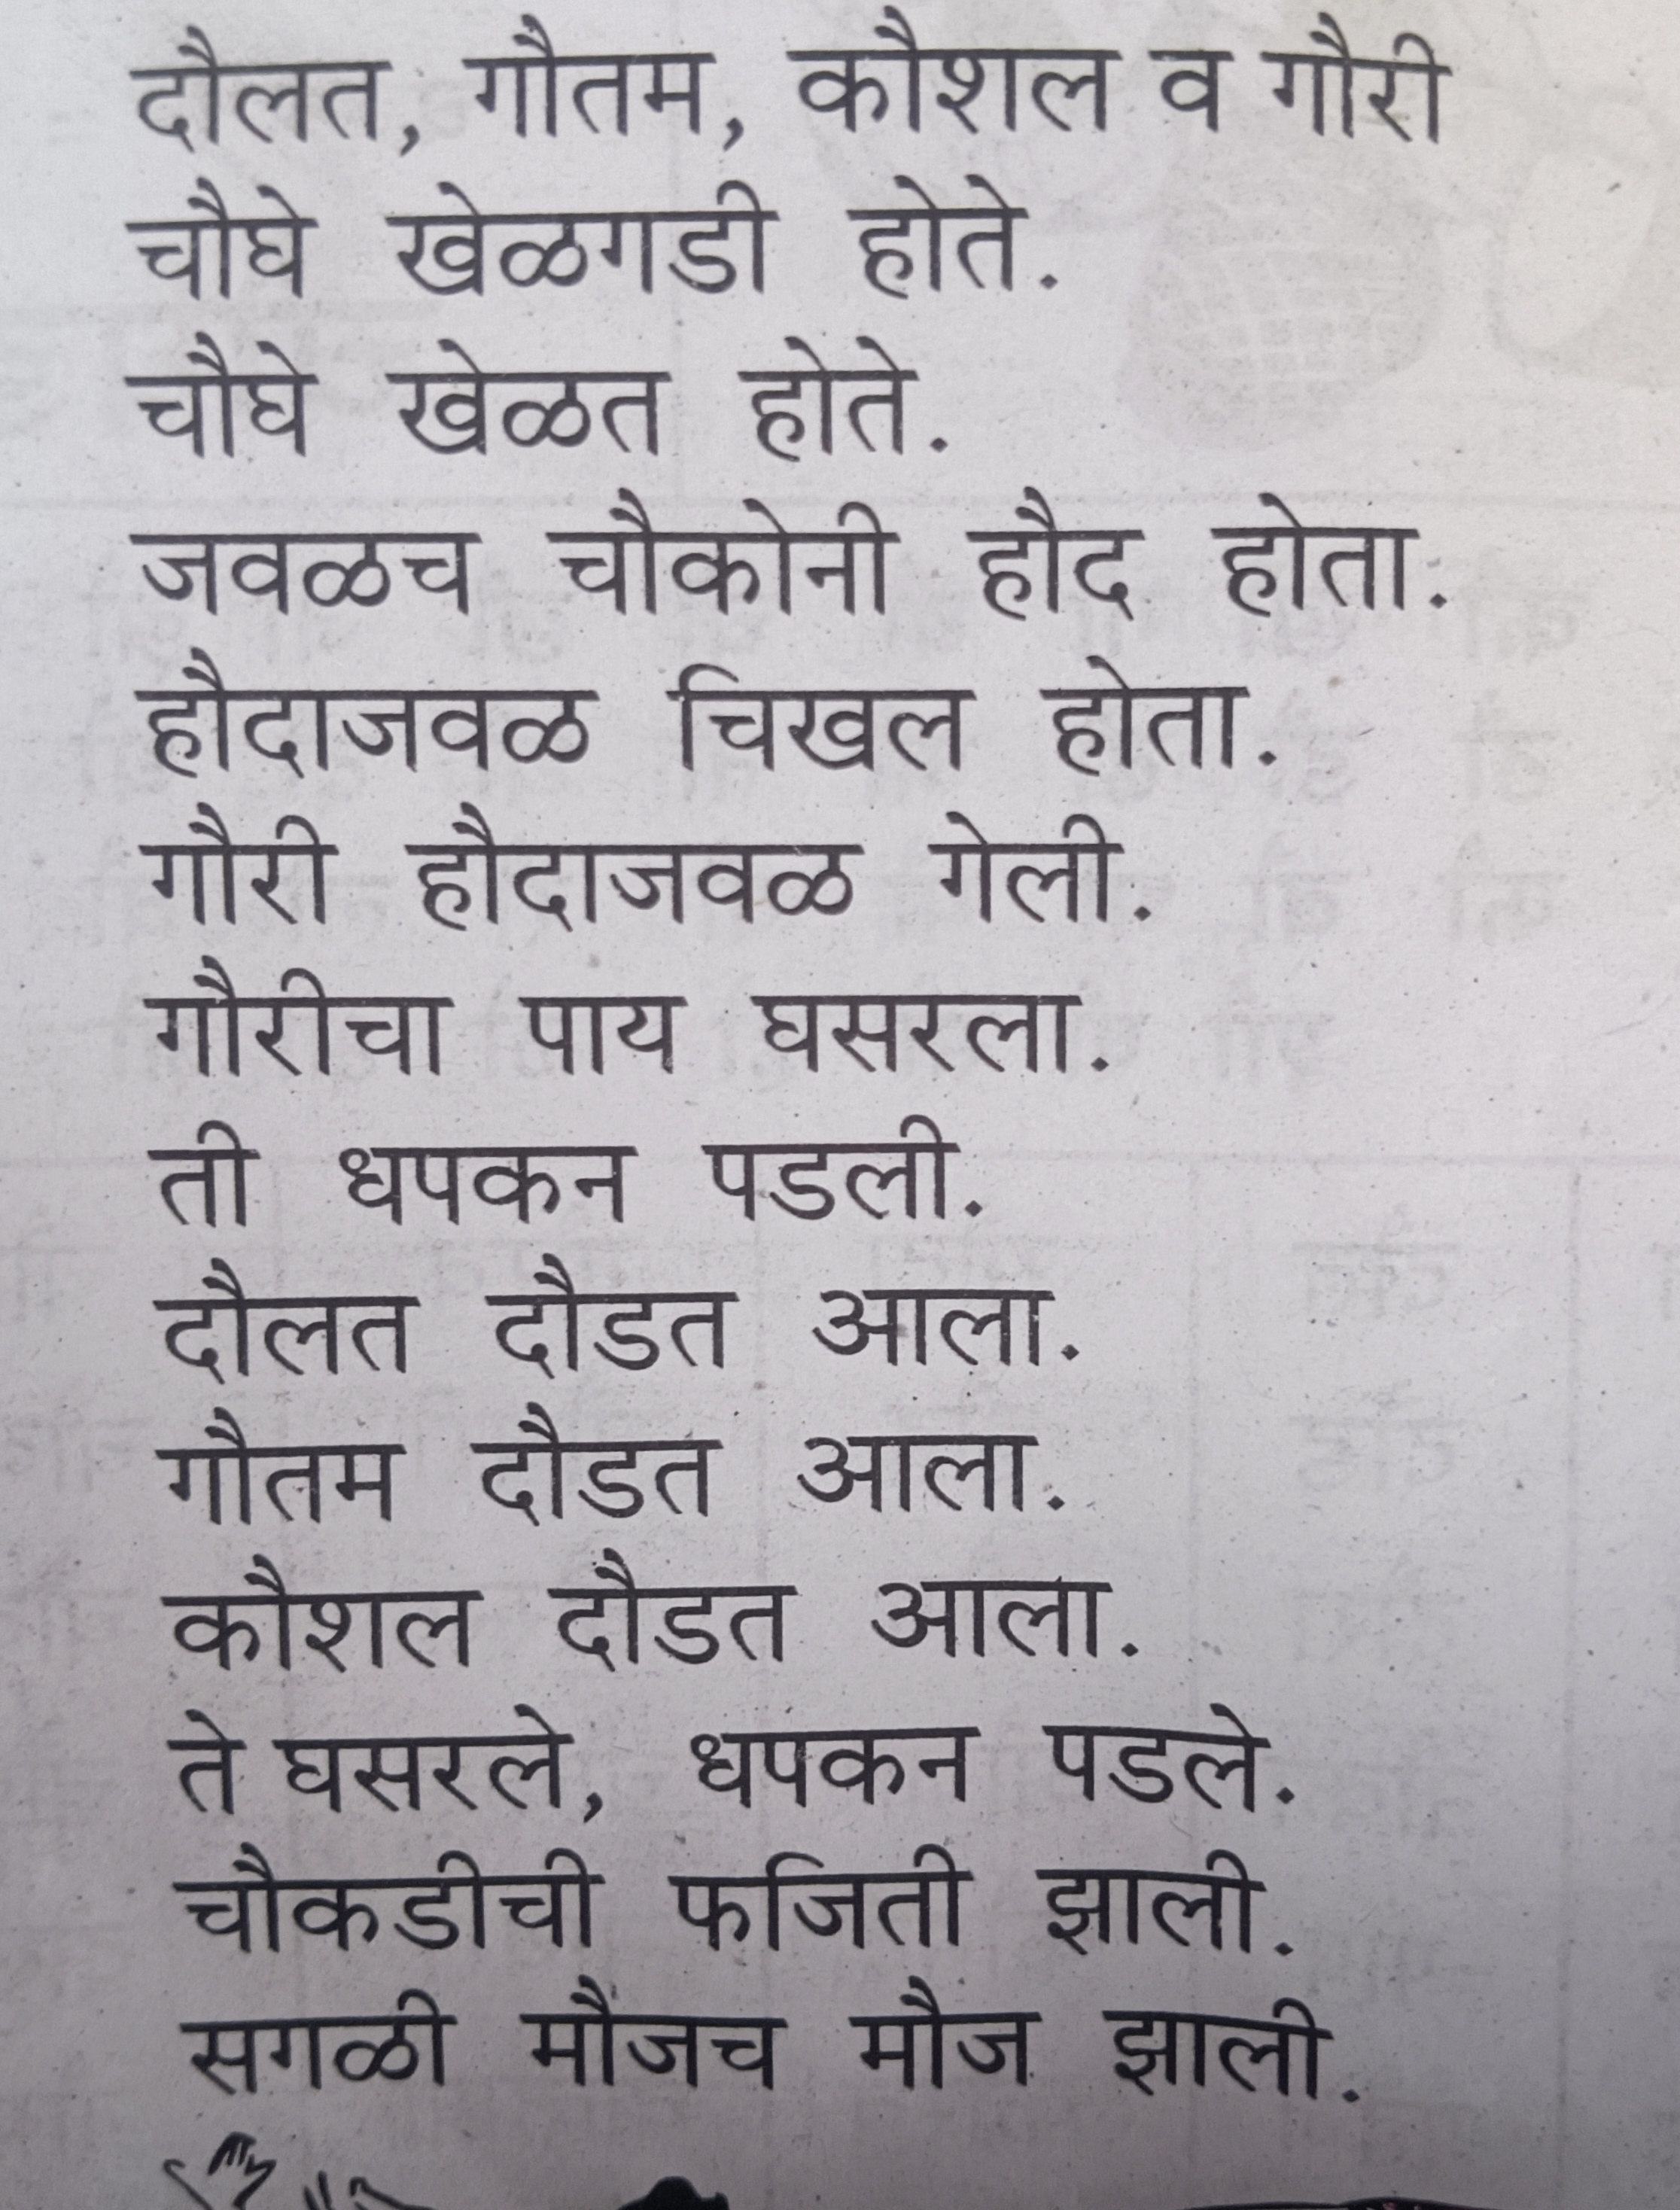 दौलत, गौतम, कौशल व गौरी
चौघे खेळगडी होते.
चौघे खेळत होते.
जवळच चौकोनी हौद होता.
हौदाजवळ चिखल होता.
गौरी हौदाजवळ गेली.
गौरीचा पाय घसरला.
ती धपकन पडली.
दौलत दौडत आला.
गौतम दौडत आला.
कौशल दौडत आला.
ते घसरले, धपकन पडले.
चौकडीची फजिती झाली.
सगळी मौजच मौज झाली.